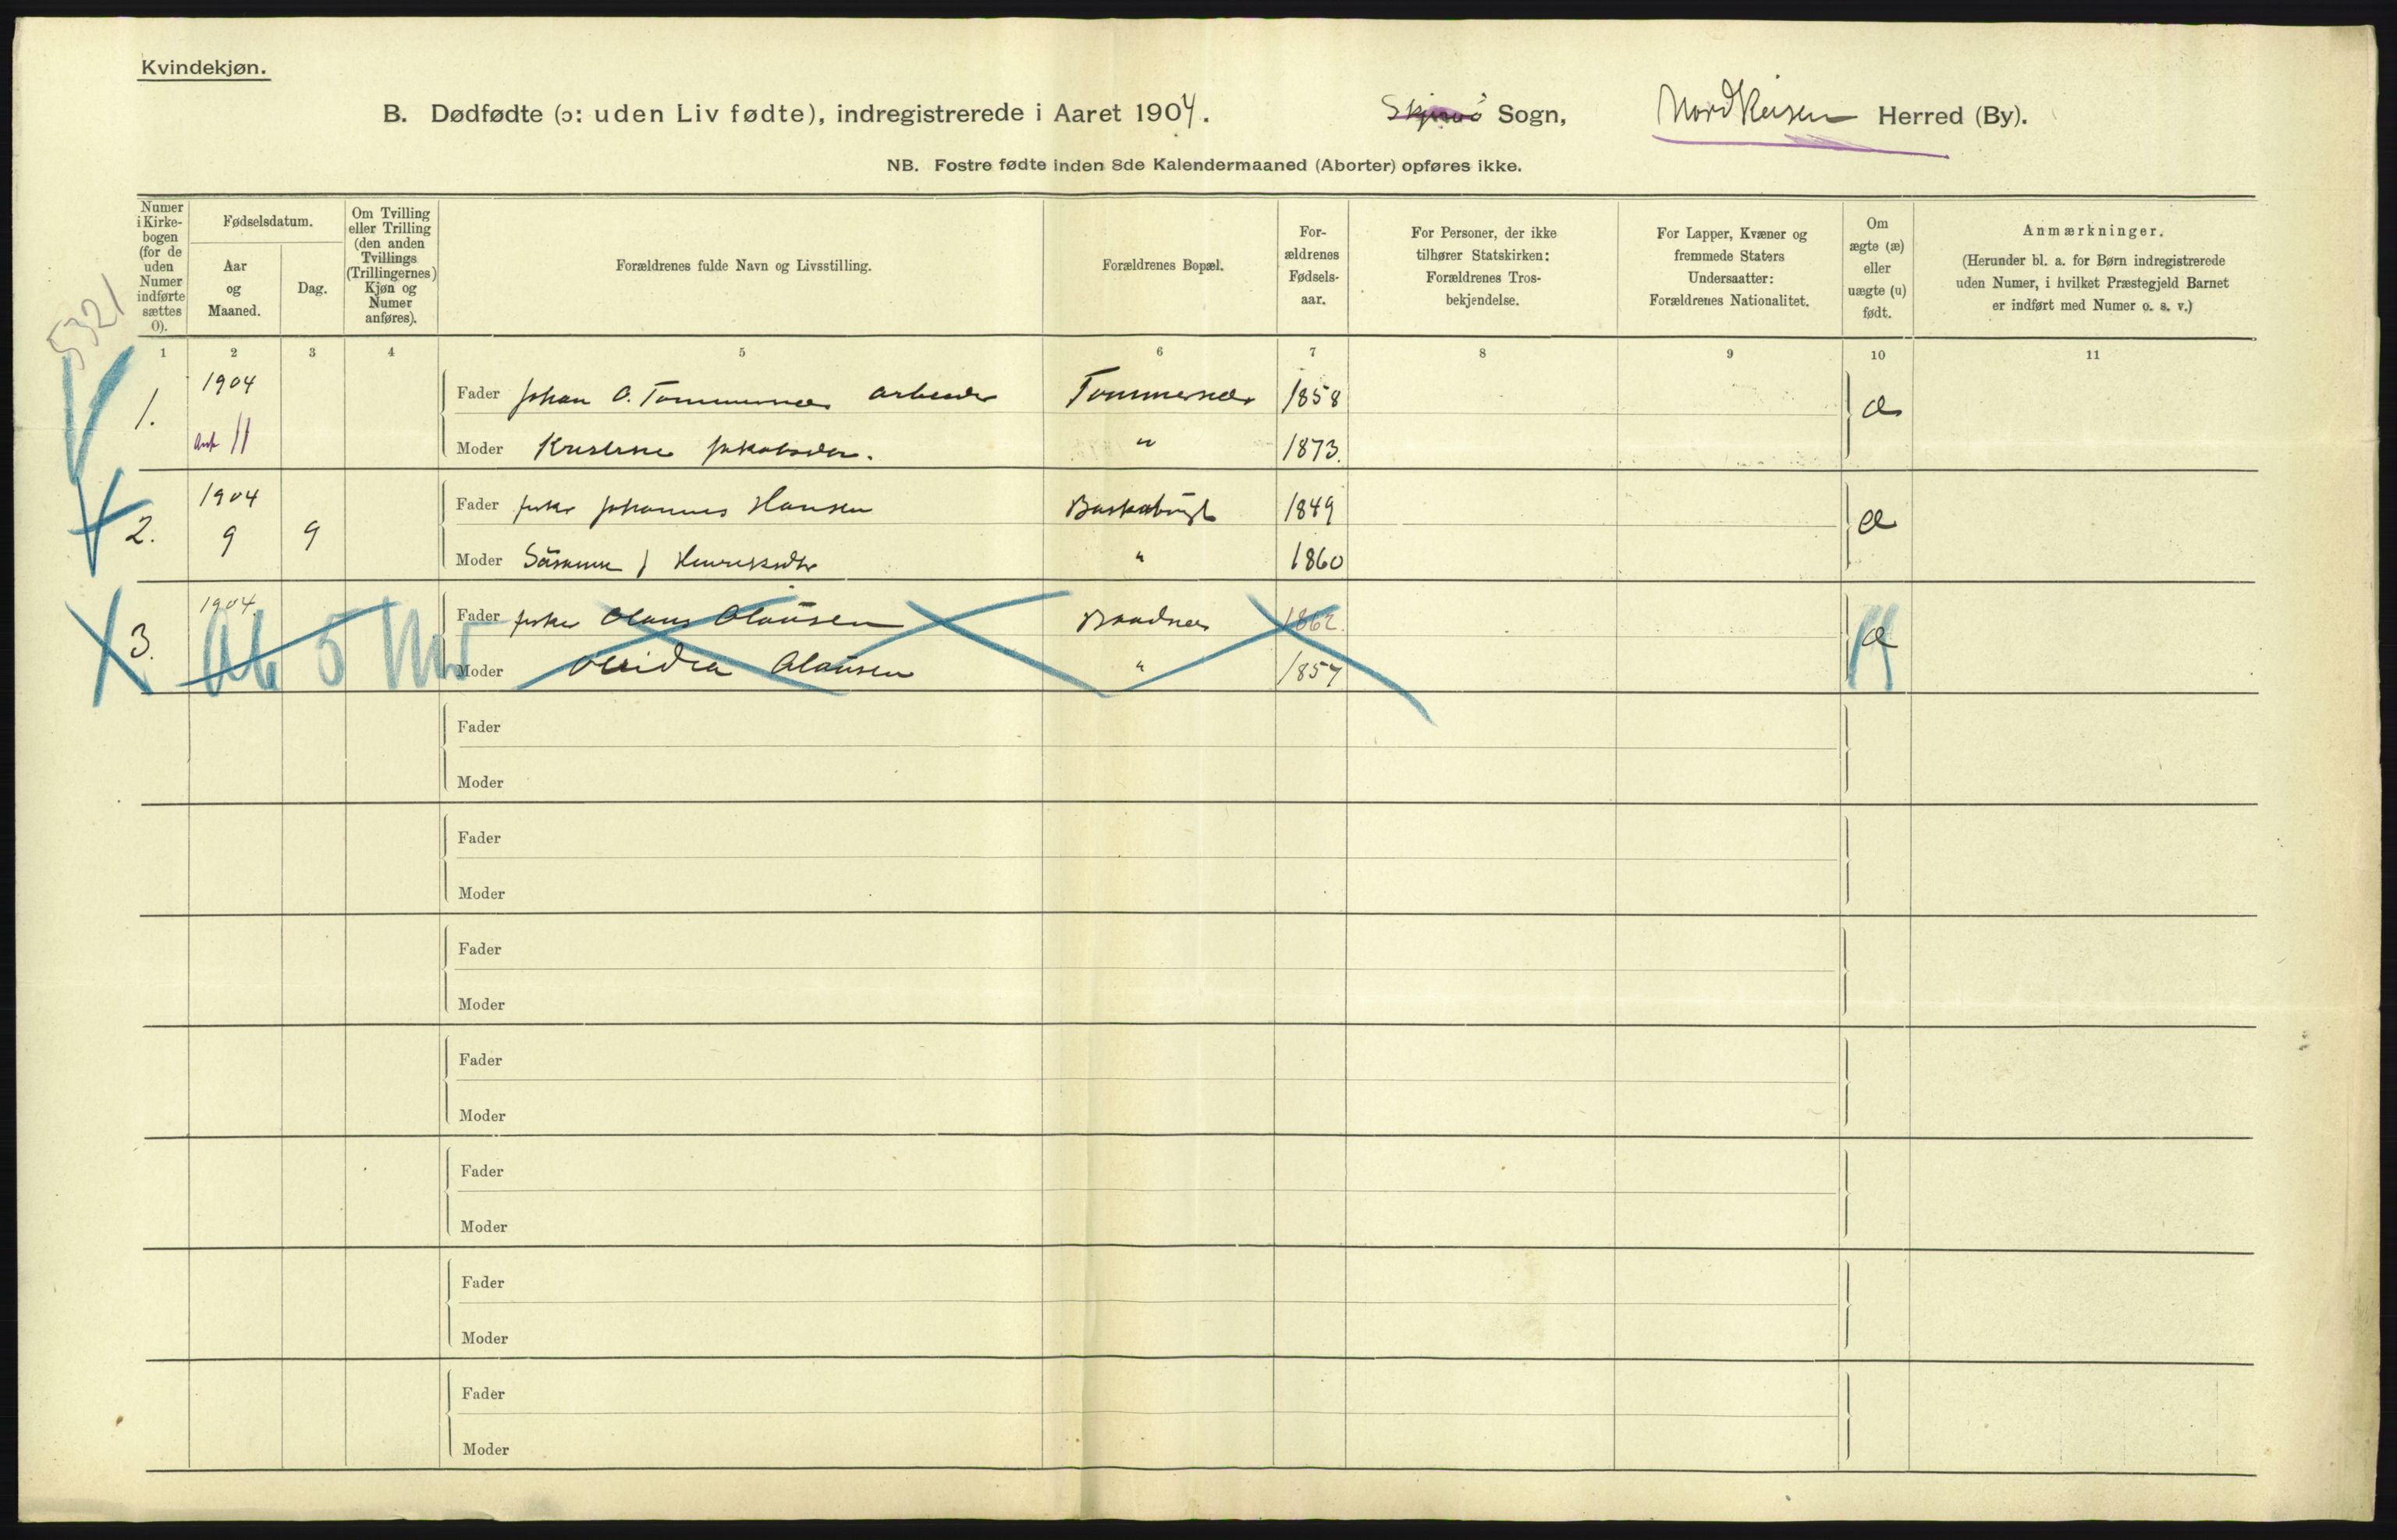 Kvindekjøn.
B. Dødfødte (ɔ: uden Liv fødte), indregistrerede i Aaret 1904. Skjervö Sogn, Nord Reisen Herred (By).
NB. Fostre fødte inden 8de Kalendermaaned (Aborter) opføres ikke.
5321
Numer i Kirke-bogen (for de uden Numer indførte sættes 0).
Fødselsdatum.
Aar og Maaned.
Dag.
Om Tvilling eller Trilling (den anden Tvillings (Trillingernes) Kjøn og Numer anføres).
Forældrenes fulde Navn og Livsstilling.
Forældrenes Bopæl.
For-ældrenes Fødsels-aar.
For Personer, der ikke tilhører Statskirken: Forældrenes Tros-bekjendelse.
For Lapper, Kvæner og fremmede Staters Undersaatter: Forældrenes Nationalitet.
Om ægte (æ) eller uægte (u) født.
Anmærkninger.
(Herunder bl. a. for Børn indregistrerede uden Numer, i hvilket Præstegjeld Barnet er indført med Numer o. s. v.)
1 2 3 4 5 6 7 8 9 10 11
1. 1904 11 Fader Johan O. Tommernes Arbeider Tommernes 1858 æ
Moder Kristine Jakobsdr. " 1873.
2. 1904 9 9 Fader fisker Johannes Hansen 1849 æ
Moder Henriksdtr " 1860
3. 1904. 5 Fader fisker Olaus Olausen 1862. æ
Moder Olausen " 1857
Fader
Moder
Fader
Moder
Fader
Moder
Fader
Moder
Fader
Moder
Fader
Moder
Fader
Moder